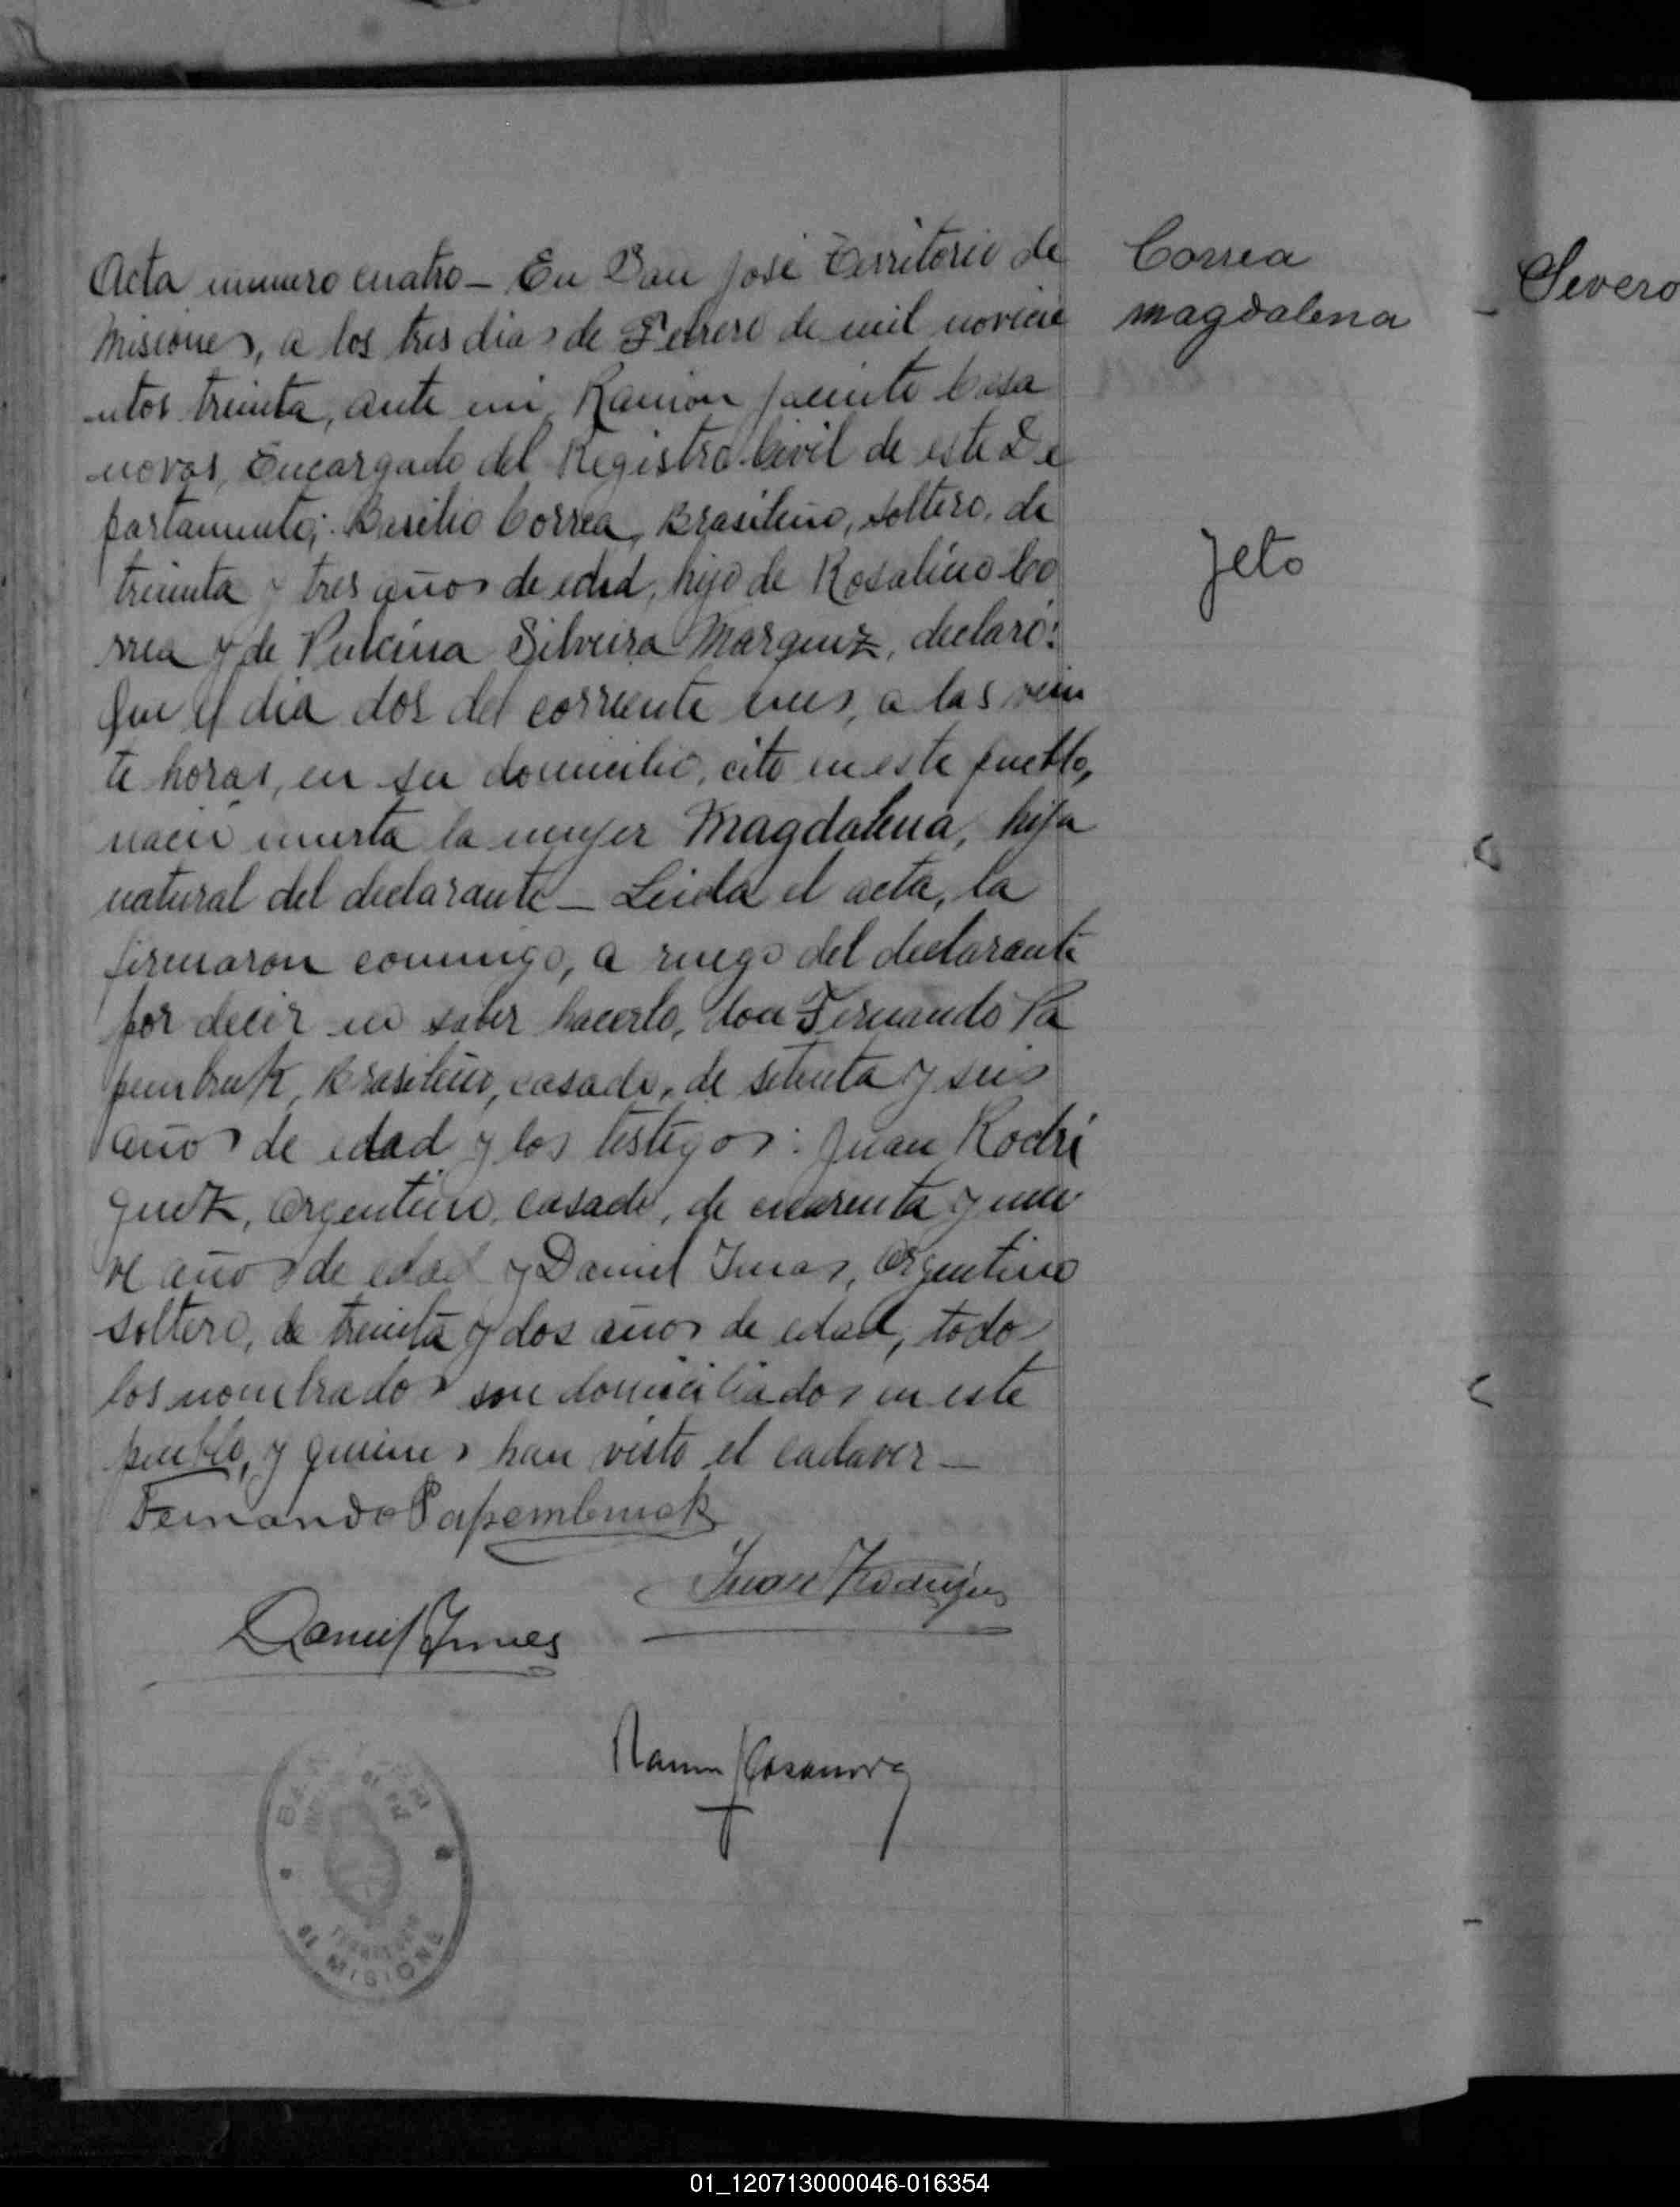 Acta numero cuatro - En San José Territorio de
Misiones, a los tres dias de Febrero de mil novecie
-ntos treinta, ante mi Ramon Jacinto Casa
-novas, Encargado del Registro Civil de este De
partamento; Basilio Correa, Brasileño, soltero, de
treinta y tres años de edad, hijo de Rosalino Co
rrea y de Pulcina Silveira Marquez, declaró:
Que el dia dos del corriente mes, a las vein
te horas, en su domicilio, cito en este pueblo,
nació muerta la mujer Magdalena, hija
natural del declarante - Leida el acta, la
firmaron conmigo, a ruego del declarante
por decir no saber hacerlo, don Fernando Pa
pembruk, Brasileño, casado, de setenta y seis
años de edad y los testigos: Juan Rodri
guez, Argentino, casado, de cuarenta y nue
ve años de edad y Daniel Imas, Argentino
soltero, de treinta y dos años de edad, todos
los nombrados son domiciliados en este
pueblo, y quienes han visto el cadaver -
Fernando Papembruck
Juan Rodriguez
Daniel
Ramon J Casanova
TERRITORIO
DE MISIONE
Correa
Magdalena
Feto
Severo
01_120713000046-016354